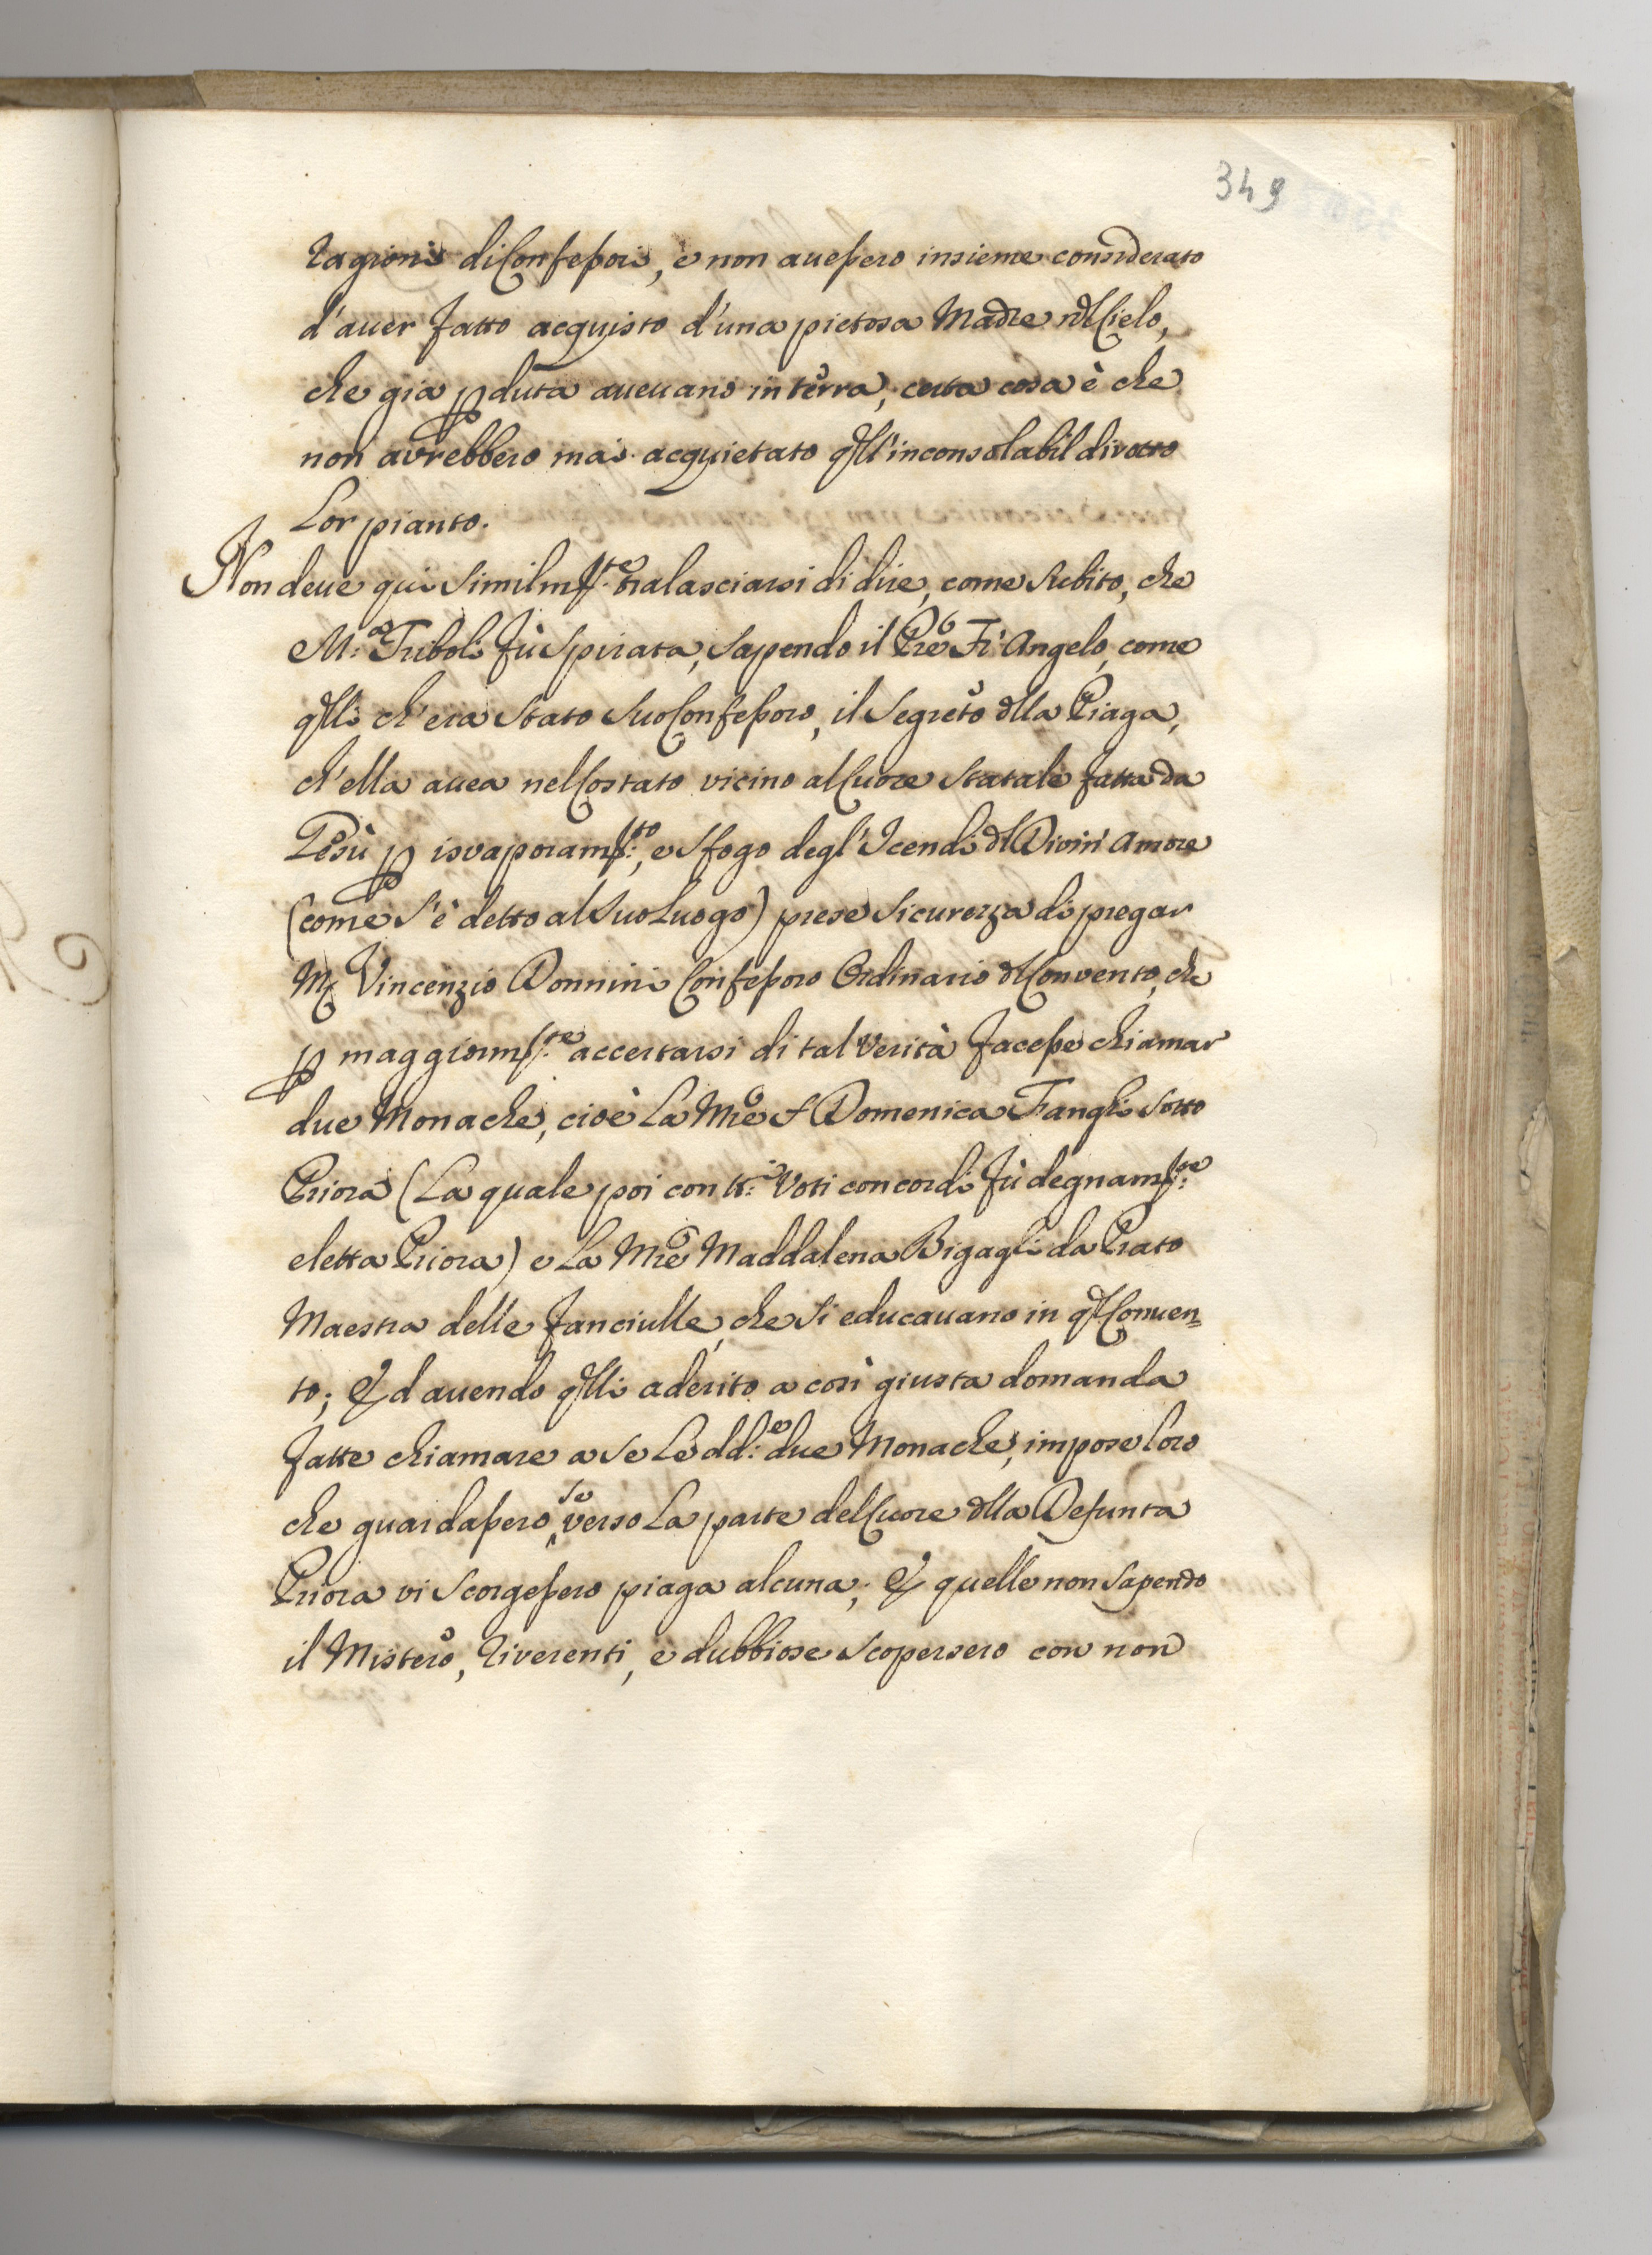 349
ragioni di Confessori, e non avessero insieme considerato
d'auer fatto acquisto d'una pietosa Madre nel Cielo,
che gia pduta aueuano in terra, certa cosa è che
non avrebbero mai acquietato qll'inconsolabil divoto
Lor pianto.
Non deue qui similmte tralasciarsi di dire, come subito, che
M:a Triboli fù spirata, sapendo il Pre Fr Angelo, come
qlli ch'era stato suo Confessoro, il segreto dlla Piaga,
ch'ella auea nel Costato vicino al Cuore statale fatta da
Gesù p isvaporamto:, e sfogo degl'Icendi dl Divin' amore
(come s'è detto al suo Luogo) prese sicurezza di pregar
Mr Vincenzio Donnini Confessoro Ordinario dl Convento, che
p maggiormte: accertarsi di tal Verità facesse chiamar
due Monache, cioè La Mre S Domenica Fangli sotto
Priora (La quale poi con tt:i Voti concordi fù degnamte:
eletta Priora) e La Mre Maddalena Bigagli da Prato
Maestra delle fanciulle, che si educauano in ql Conuen=
to; Ed auendo qlli aderito a così giusta domanda
fatte chiamare a se Le dd:e due Monache, impose loro
che guardassero, se verso La parte del Cuore dlla Defunta
Priora vi scorgessero piaga alcuna; E quelle non sapendo
il Mistero, riverenti, e dubbiose scopersero con non